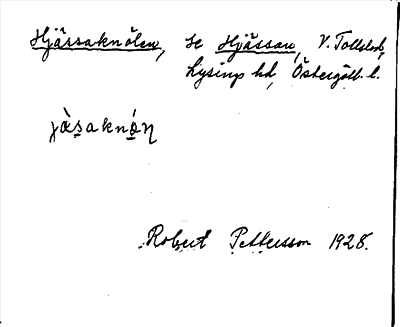 Hjässaknölen, se Hjässan, V. Tollstad,
Lysings hd, Östergötl. l.
jàsaknǿɳ
Robert Pettersson 1928.